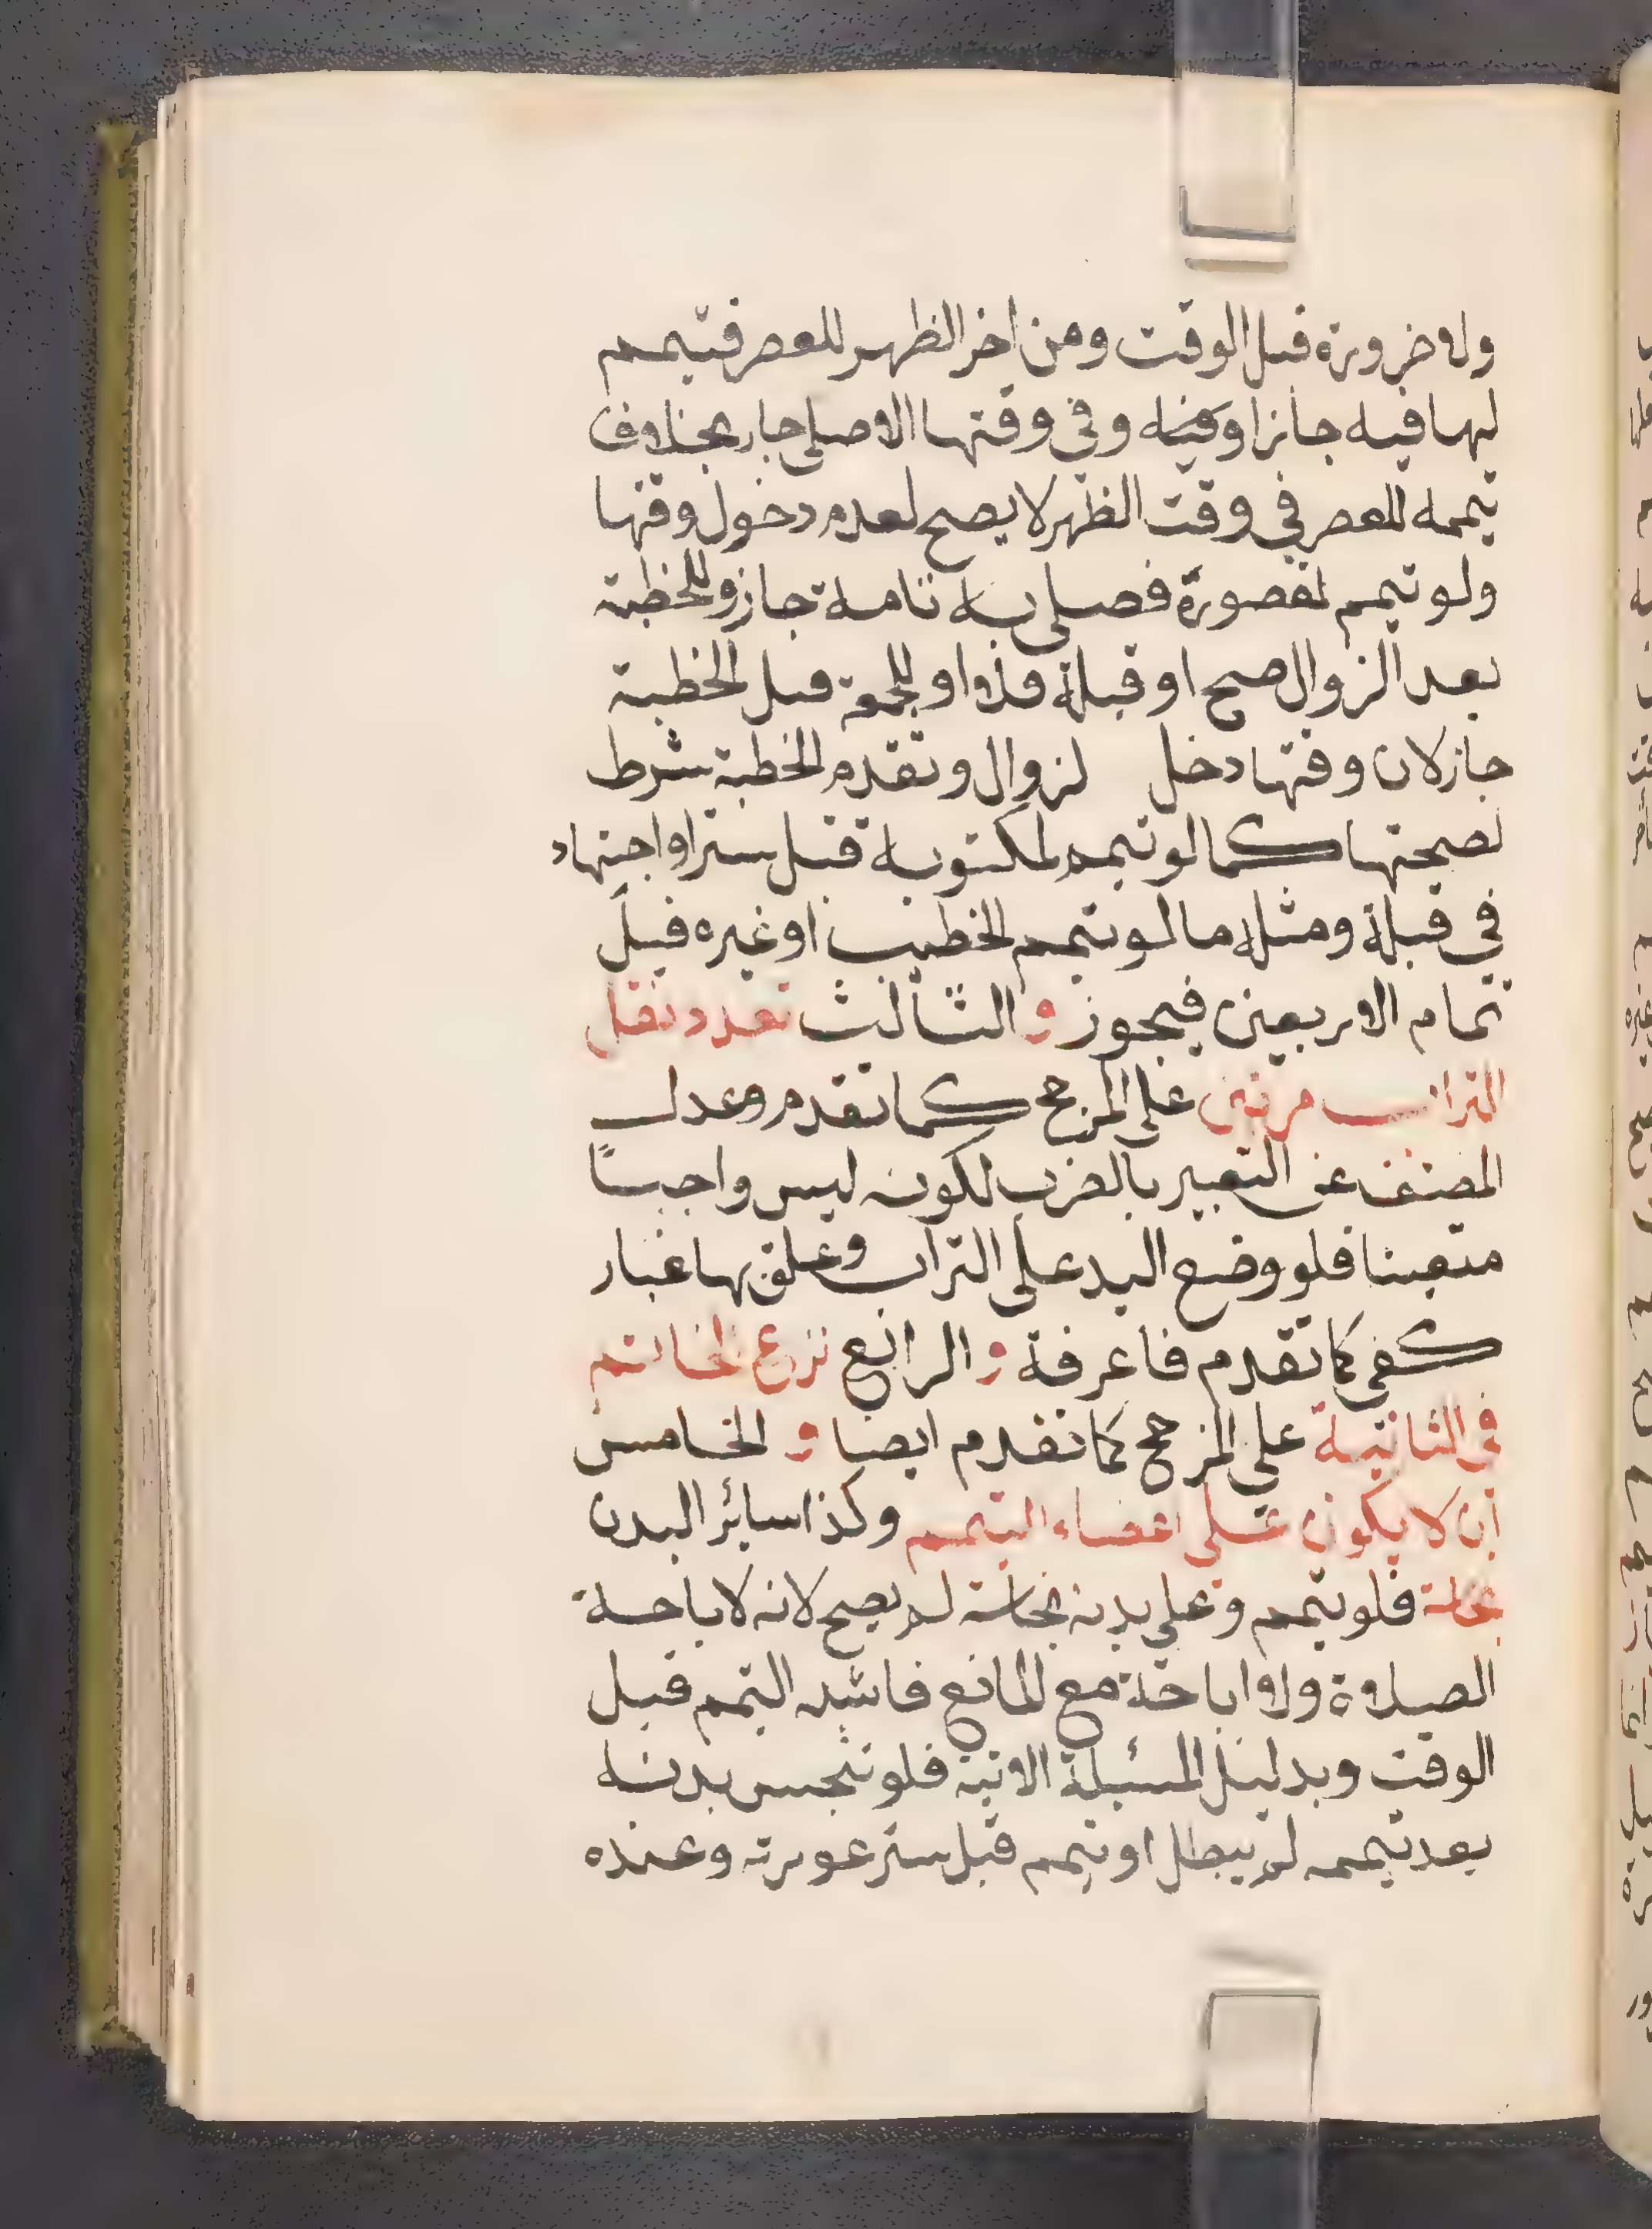 ولا ضرورة قبل الوقت ومن اخر الظهر للعصر فتيمم
لها فيه جاز او فيه وفي وقتها الاصلي جاز بخلاف
تيممه للعصر في وقت الظهر لا يصح لعدم دخول وقتها
ولو تيمم لمقصورة فصلي به تامة جاز وللخطبة
بعد الزوال صح او قبله فلا او للجمعة قبل الخطبة
جاز لان وقتها دخل لزوال وتقدم الخطبة شرط
لصحتها كما لو تيمم لمكتوبة قبل ستر او اجتهاد
في قبلة ومثله ما لو تيمم الخطيب او غيره قبل
تمام الاربعين فيجوز و الثالث تعدد نقل
التراب مرتين علي المرجح كما تقدم وعدل
المصنف عن التعبير بالضرب لكونه ليس واجبا
متعينا فلو وضع اليد على التراب وعلق بها غبار
كفي كما تقدم فاعرفه و الرابع نزع الخاتم
في الثانية علي المرجح كما تقدم ايضا و الخامس
ان لا يكون علي اعضاء التيمم وكذا سائر البدن
نجاسة فلو تيمم وعلي بدنه نجاسة لم يصح لانه لاباحة
الصلاة ولا اباحة مع المانع فاشبه التيمم قبل
الوقت وبدليل المسئلة الاتية فلو تنجس بدنه
بعد تيممه لم يبطل او تيمم قبل ستر عورته وعنده